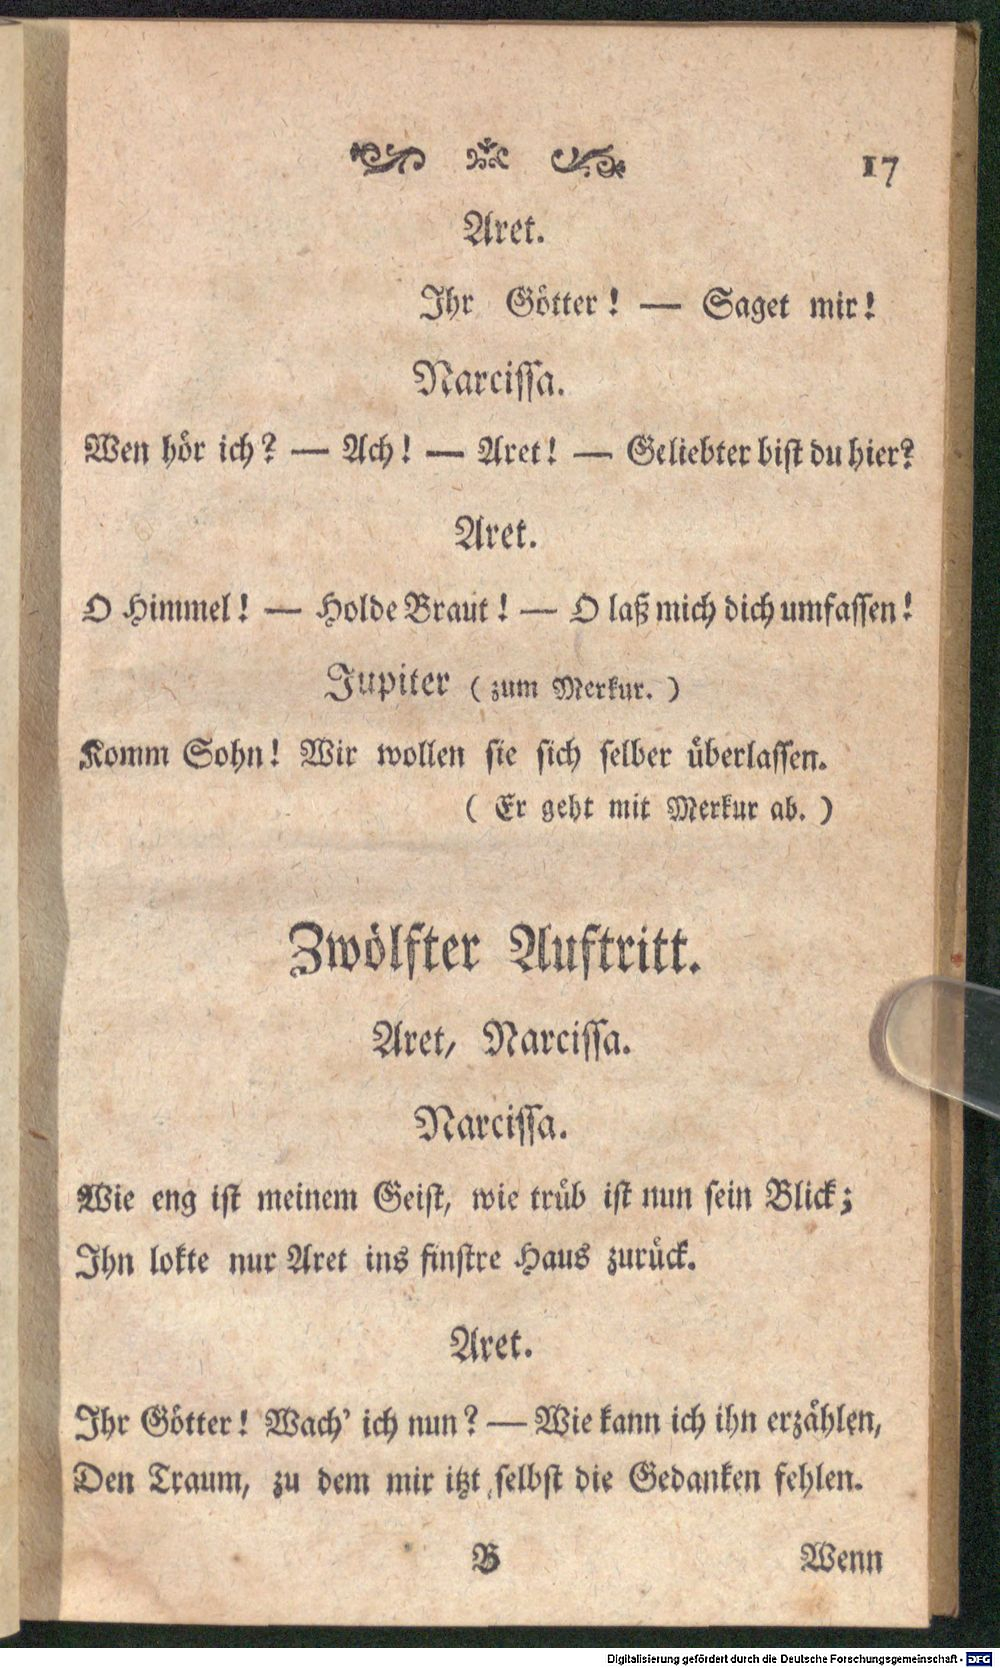 17
Aret.
Ihr Götter! — Saget mir!
Narcissa.
Wen hör ich? — Ach! — Aret! — Geliebter bist du hier?
Aret.
O Himmel! — Holde Braut! — O laß mich dich umfassen!
Jupiter (zum Merkur.)
Komm Sohn! Wir wollen sie sich selber überlassen.
(Er geht mit Merkur ab.)
Zwölfter Auftritt.
Aret, Narcissa.
Narcissa.
Wie eng ist meinem Geist, wie trüb ist nun sein Blick;
Ihn lokte nur Aret ins finstre Haus zurück.
Aret.
Ihr Götter! Wach' ich nun? — Wie kann ich ihn erzählen,
Den Traum, zu dem mir itzt selbst die Gedanken fehlen.
B Wenn
Digitalisierung gefördert durch die Deutsche Forschungsgemeinschaft - DFG